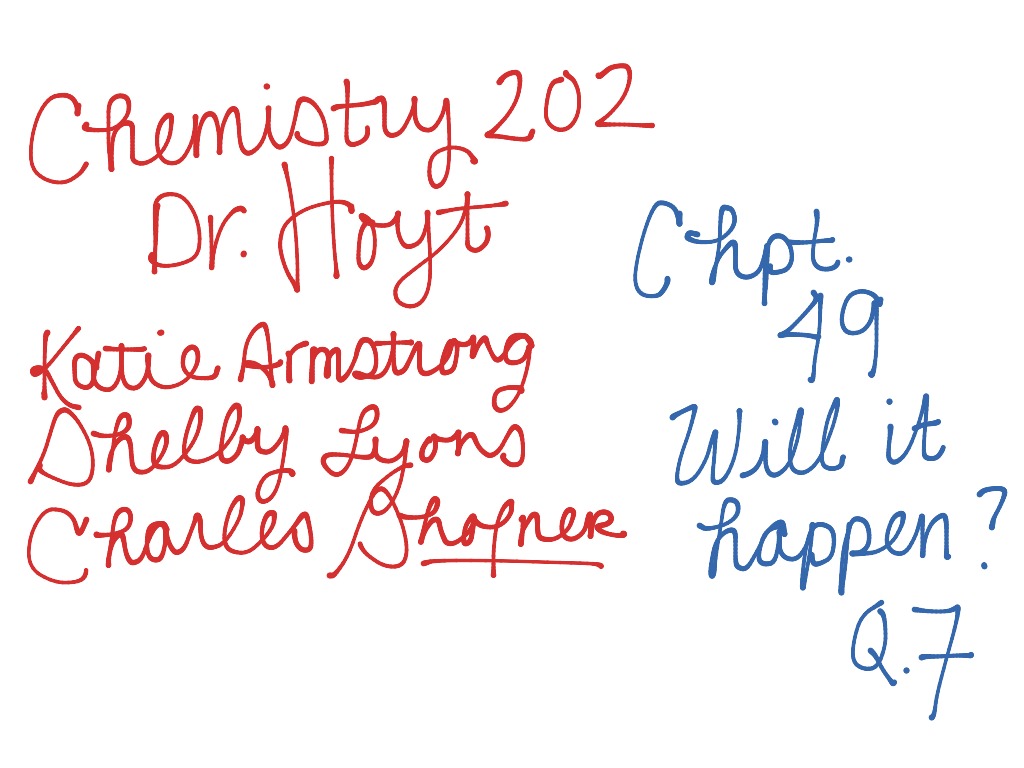 Chemistry 202
Dr. Hoyt
Katie Armstrong
Shelby Lyons
Charles Shofner
Chpt.
49
Will it
happen?
Q.7